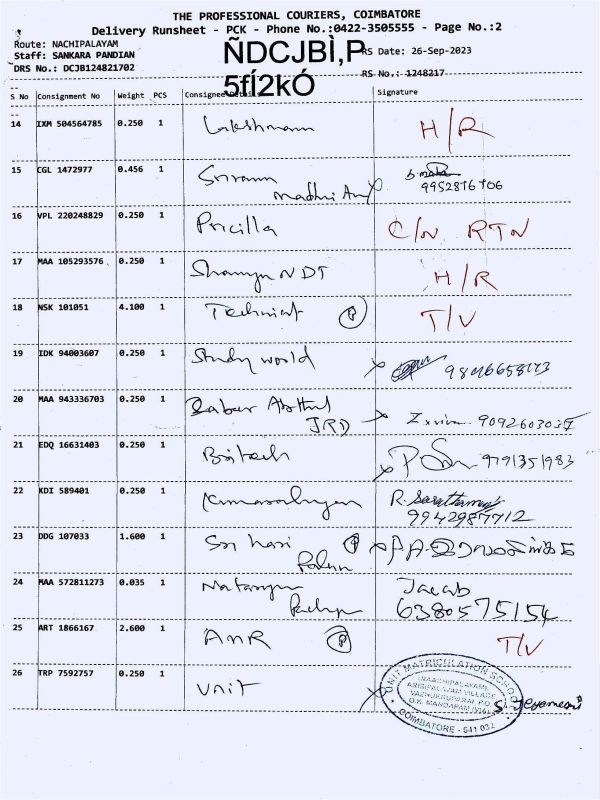 THE PROFESSIONAL COURIERS, COIMBATORE
Delivery Runsheet - PCK - Phone No.:0422-3505555 - Page No.:2
Route: NACHIPALAYAM
Staff: SANKARA PANDIAN
RS Date: 26-Sep-2023
DRS No.: DCJB124821702
ÑDCJBÌ,P
5fÍ2kÓ
RS No.: 1248217
S No Consignment No Weight PCS Consignee Details Signature
14 IXM 504564785 0.250 1 Lakshmanan H/R
15 CGL 1472977 0.456 1 Sriram
9952876706
16 VPL 220248829 0.250 1 Pricilla C/N RTN
17 MAA 105293576 0.250 1 NDT H/R
18 NSK 101051 4.100 1 P T/V
19 IDK 94003607 0.250 1 Study world
20 MAA 943336703 0.250 1
JRD
21 EDQ 16631403 0.250 1 9791351983
22 KDI 589401 0.250 1
9942987712
23 DDG 107033 1.600 1 Sri hari P
24 MAA 572811273 0.035 1 Jacob
6380575154
25 ART 1866167 2.600 1 AMR P T/V
26 TRP 7592757 0.250 1 Unit
UNIT MATRICULATION SCHOOL
COIMBATORE - 641 032